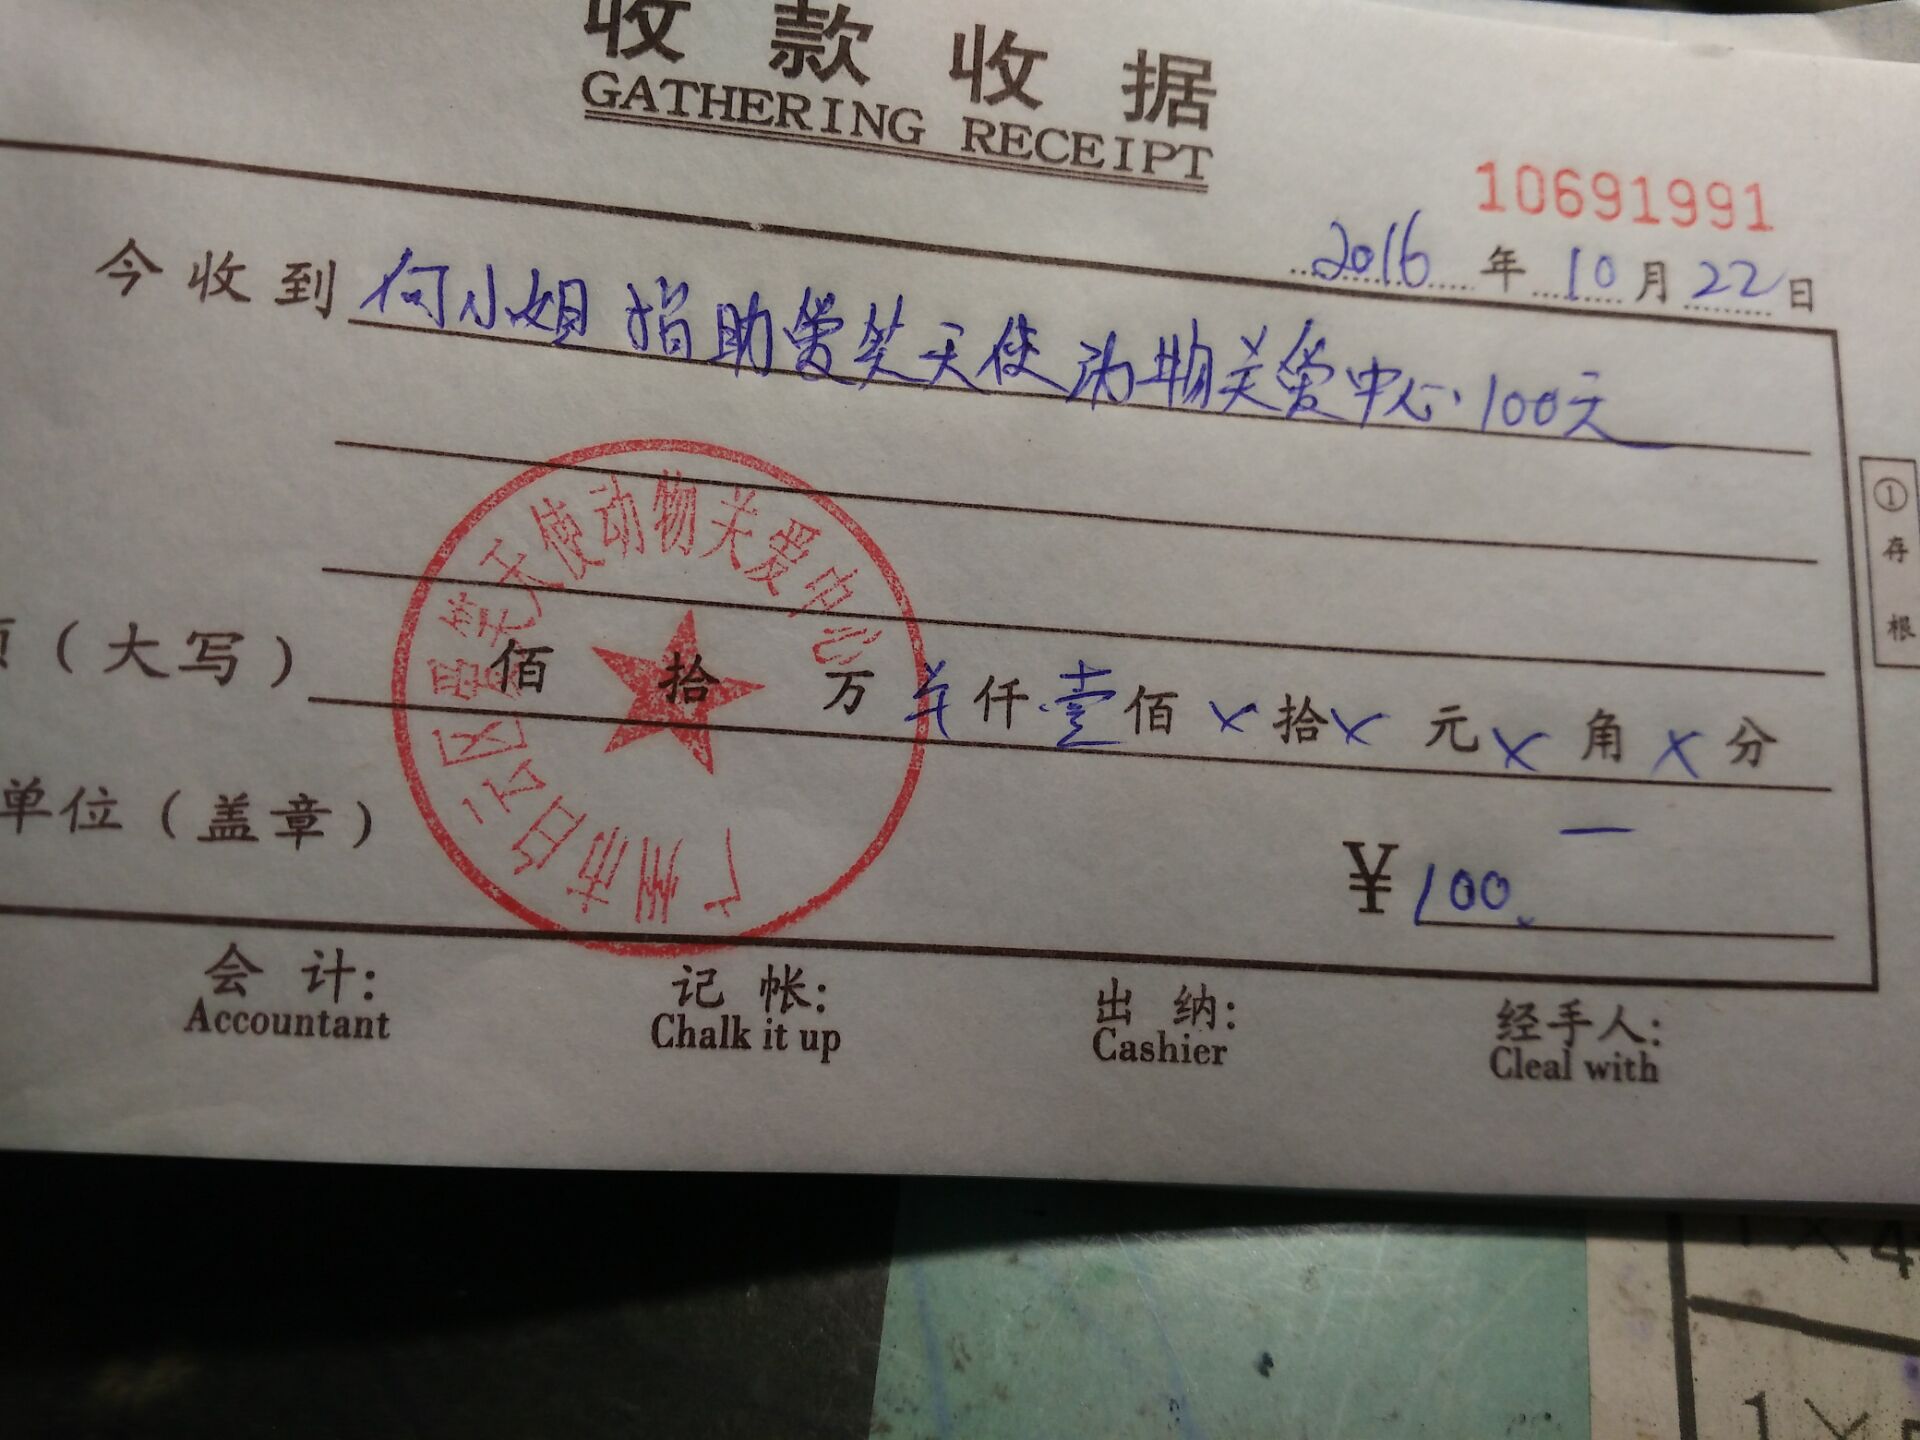 收款收据
GATHERING RECEIPT
10691991
2016年10月22日
今收到 何小姐 捐助爱笑天使动物关爱中心 100元
①存根
(大写) 佰 拾 万 仟 壹佰 × 拾 × 元 × 角 × 分
单位(盖章)
¥100.
广州市白云区爱笑天使动物关爱中心
会 计: 记 帐: 出 纳: 经手人:
Accountant Chalk it up Cashier Cleal with
1×4
1×